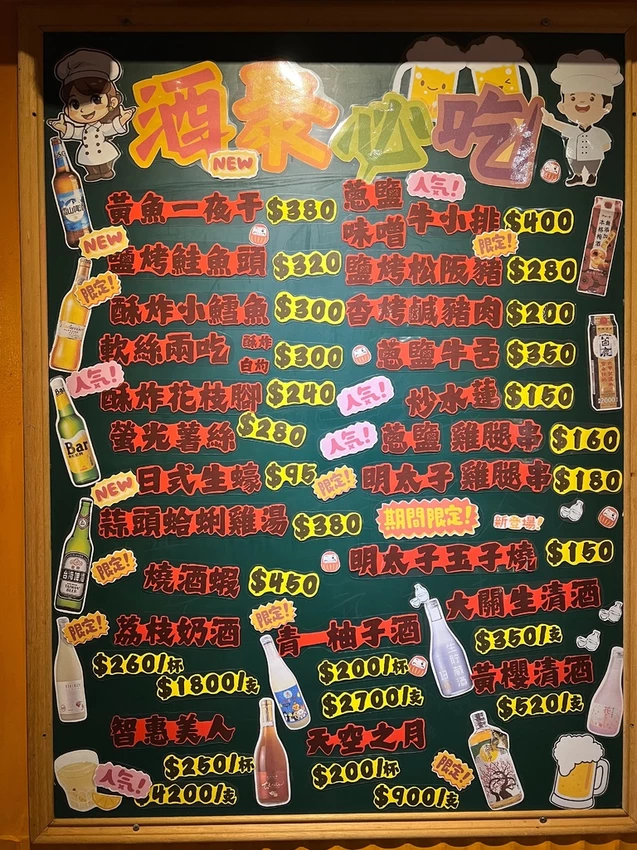 酒泰必吃
NEW
黃魚一夜干 $380
蔥鹽 味噌 牛小排 $400
人氣!
NEW
鹽烤鮭魚頭 $320
限定!
鹽烤松阪豬 $280
限定!
酥炸小鱈魚 $300
香烤鹹豬肉 $200
軟絲兩吃 酥炸 白灼 $300
蔥鹽牛舌 $350
人氣!
酥炸花枝腳 $240
人氣!
炒水蓮 $150
螢光薯絲 $280
人氣!
蔥鹽 雞腿串 $160
NEW
日式生蠔 $95
限定!
明太子 雞腿串 $180
蒜頭蛤蜊雞湯 $380
期間限定!
新登場!
明太子玉子燒 $150
限定!
燒酒蝦 $450
大關生清酒
$350/支
限定!
荔枝奶酒
$260/杯
$1800/支
限定!
青一柚子酒
$200/杯
$2700/支
黃櫻清酒
$520/支
智惠美人
$250/杯
人氣!
$4200/支
天空之月
$200/杯
$900/支
限定!
Bar
台灣啤酒
生貯蔵酒